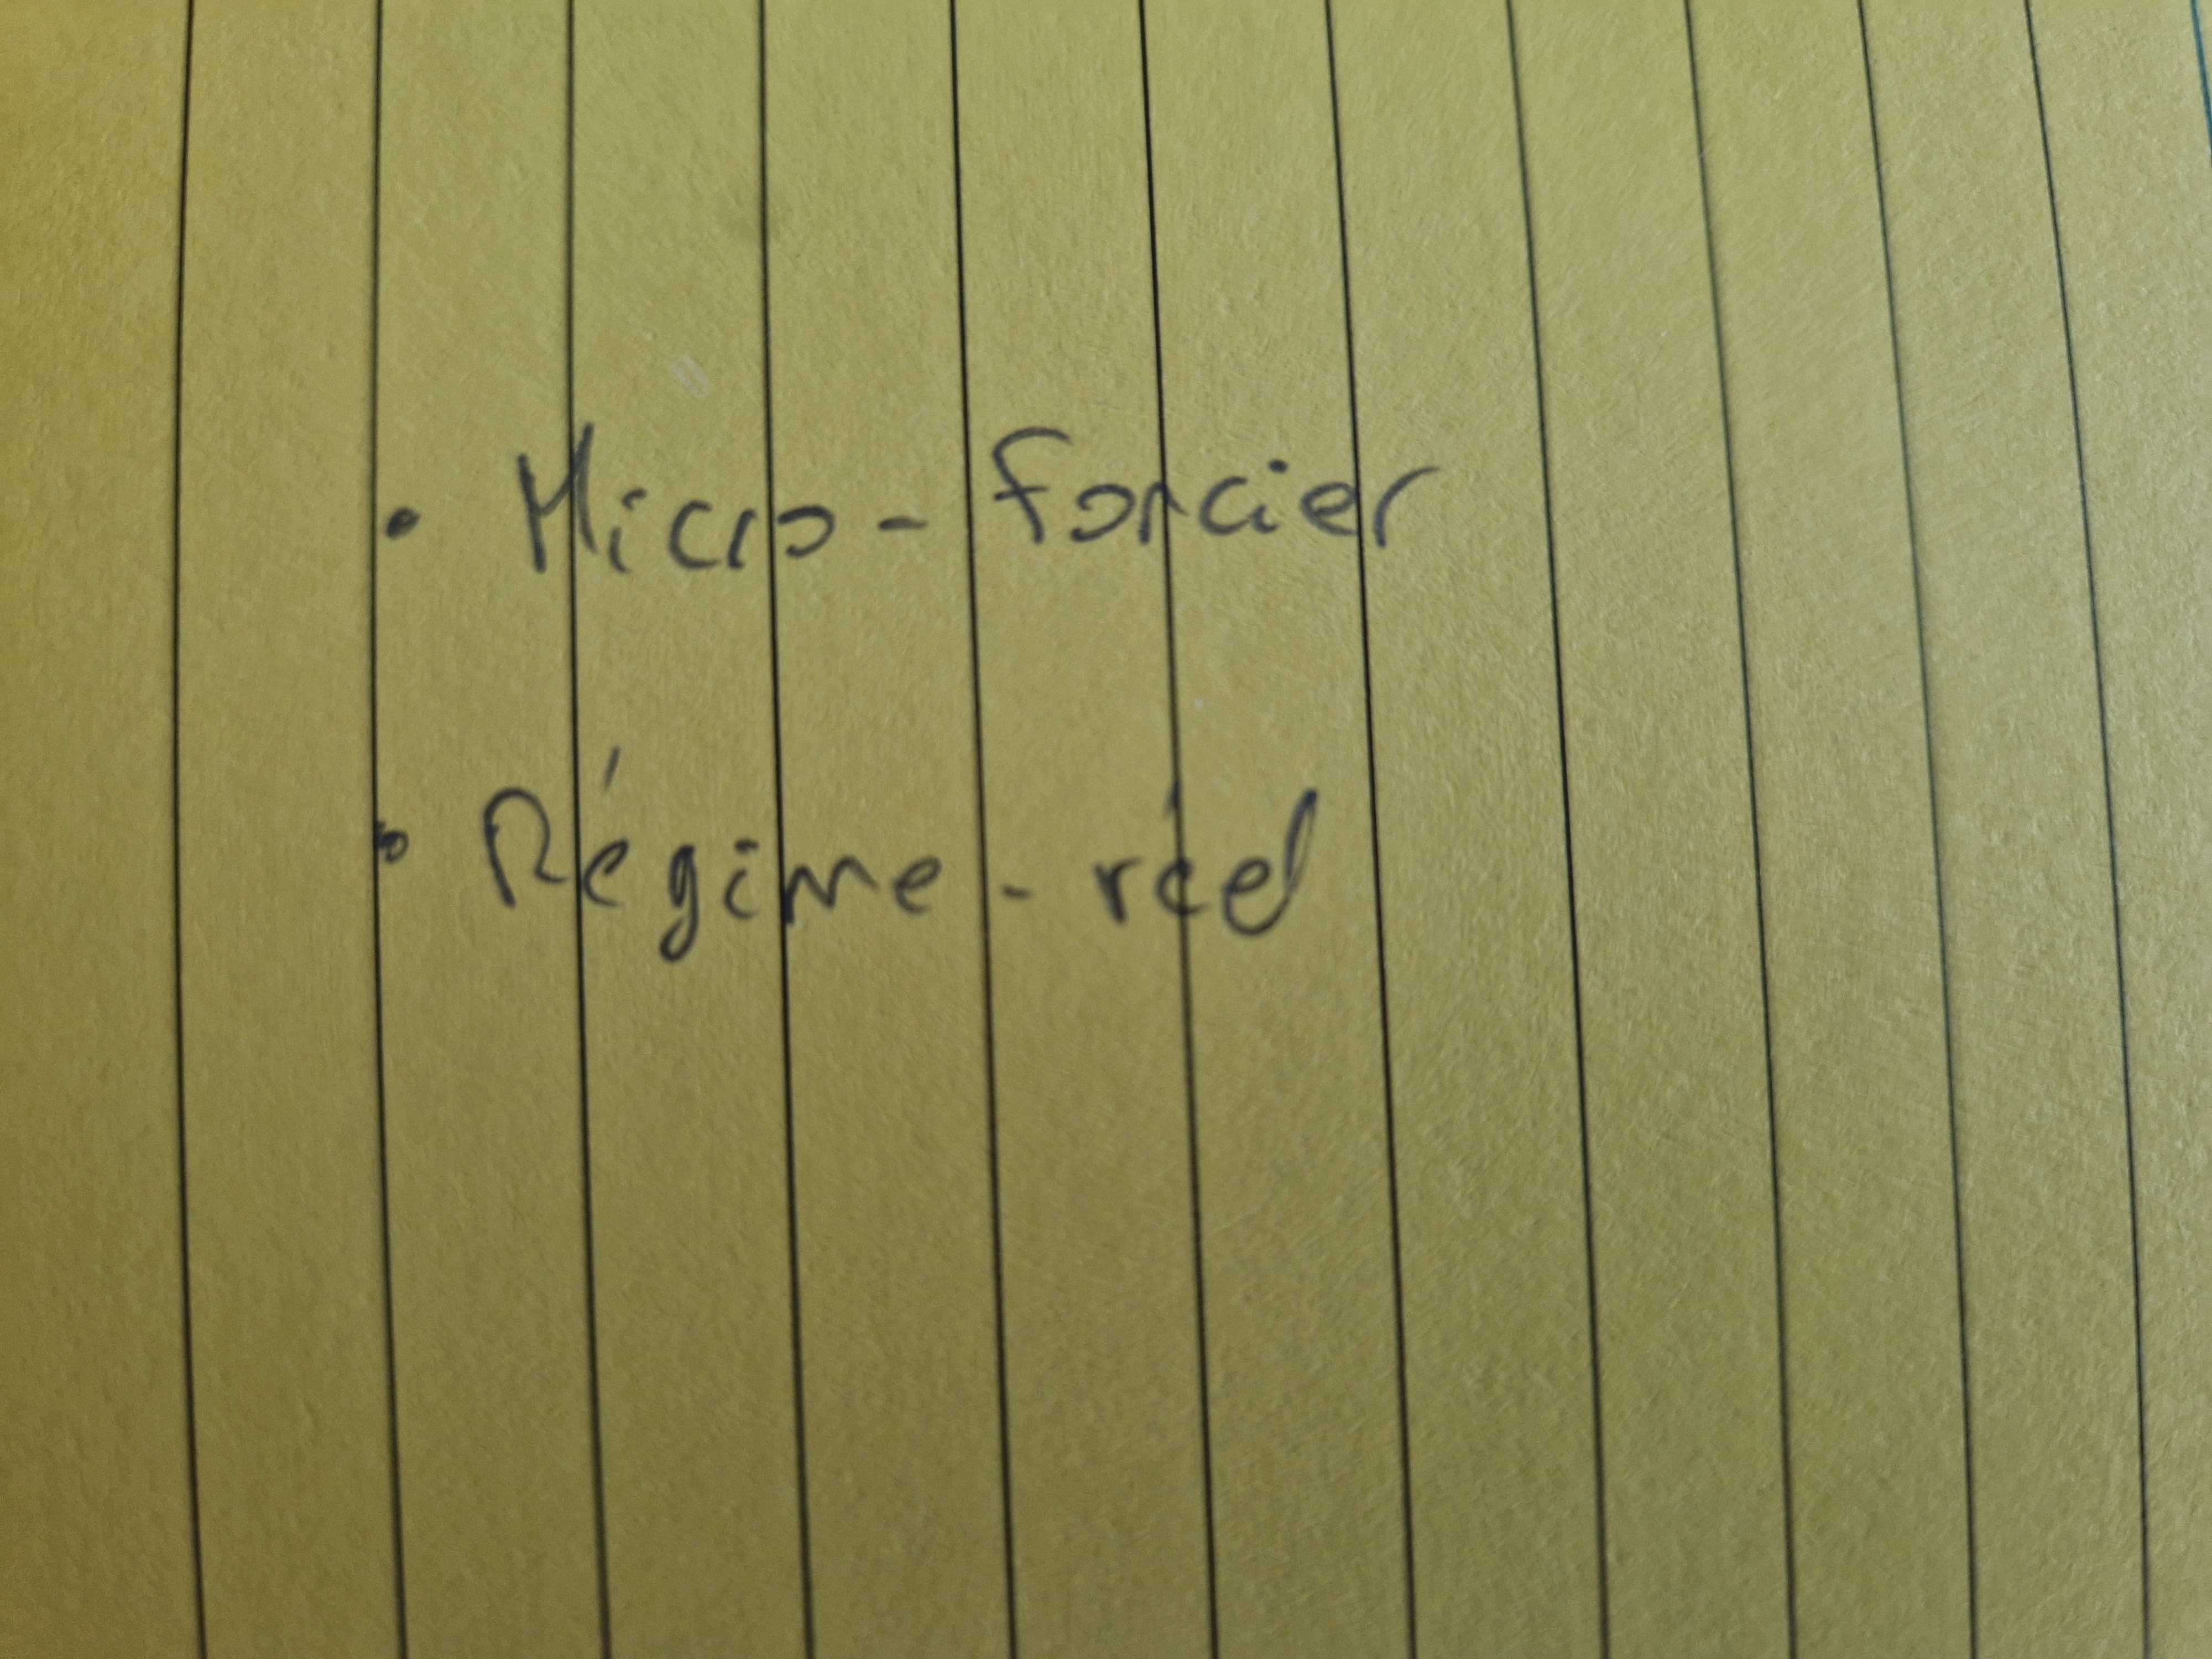 • Micro - foncier
• Régime - réel